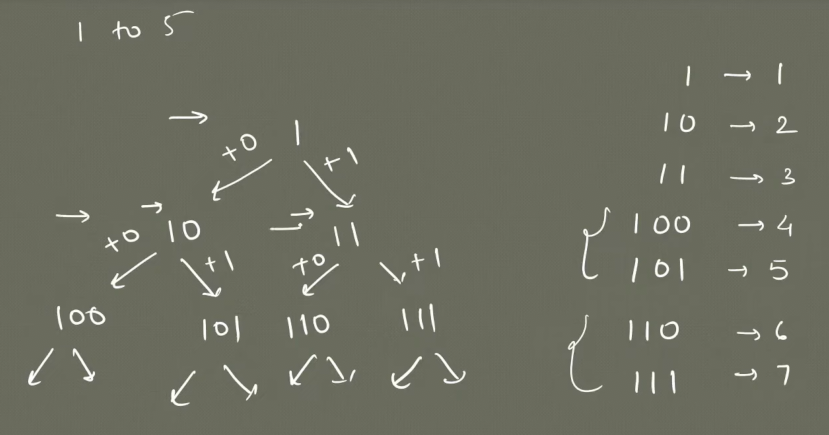 1 to 5
→ 1
+0 +1
→ → 10 → 11
+0 +1 +0 +1
100 101 110 111
1 → 1
10 → 2
11 → 3
100 → 4
101 → 5
110 → 6
111 → 7